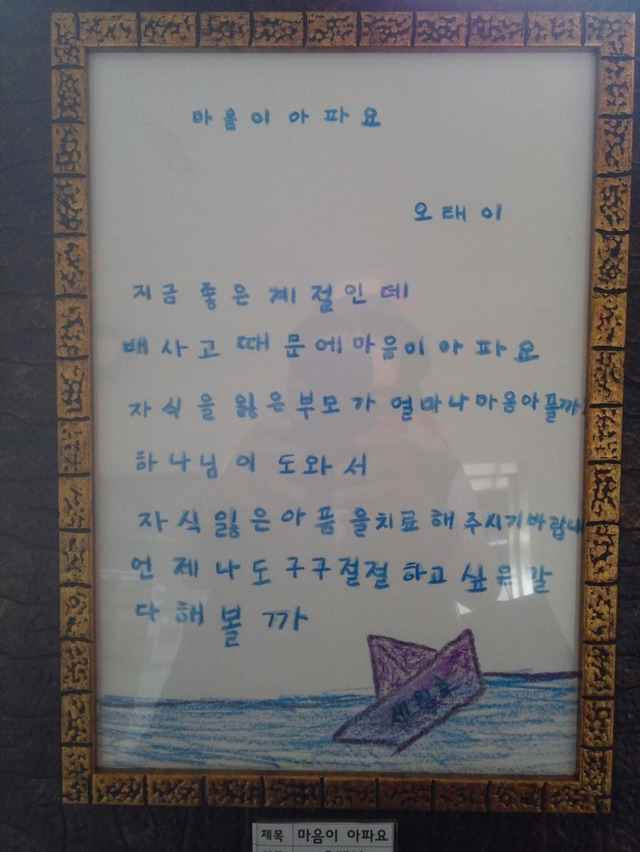 마음이 아파요
오태이
지금 좋은 계절인데
배사고 때문에 마음이 아파요
자식을 잃은 부모가 열마나 마음아플까
하나님이 도와서
자식 잃은 아픔을 치료해 주시기 바랍니
언제나도 구구절절 하고 싶은 말
다 해볼까
세월호
제목 마음이 아파요